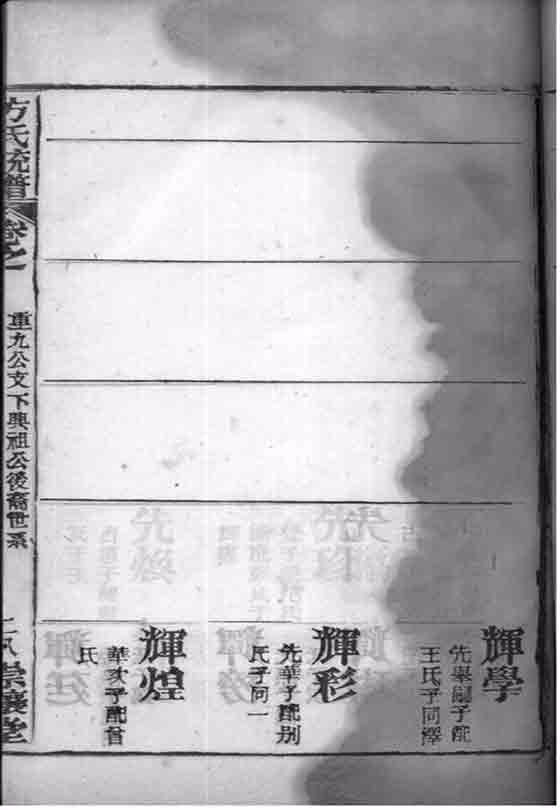 輝學
先舉嗣子配
王氏子同澤
輝彩
先華子配別
氏子同一
輝煌
華次子配晉
氏
方氏統譜
卷之一
重九公文下興祖公後裔世系
崇讓堂